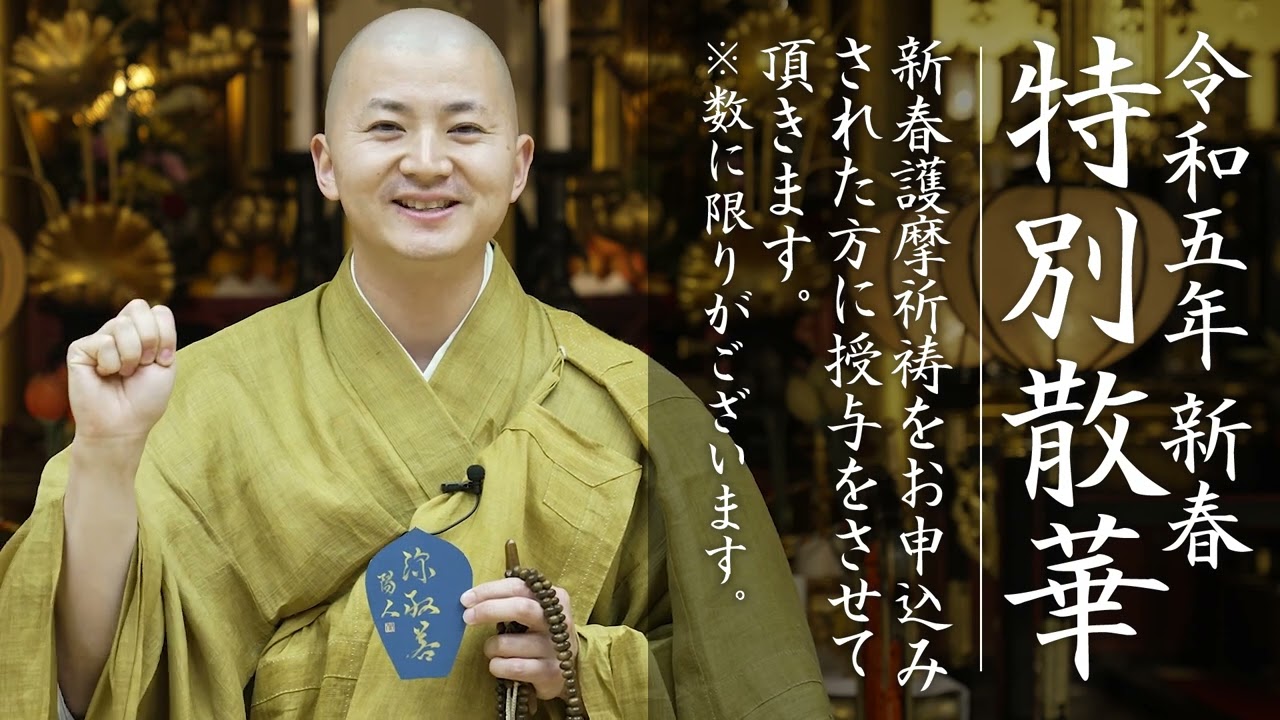 令和五年 新春
特別散華
新春護摩祈祷をお申込み
された方に授与をさせて
頂きます。
※数に限りがございます。
弥取善
陽人